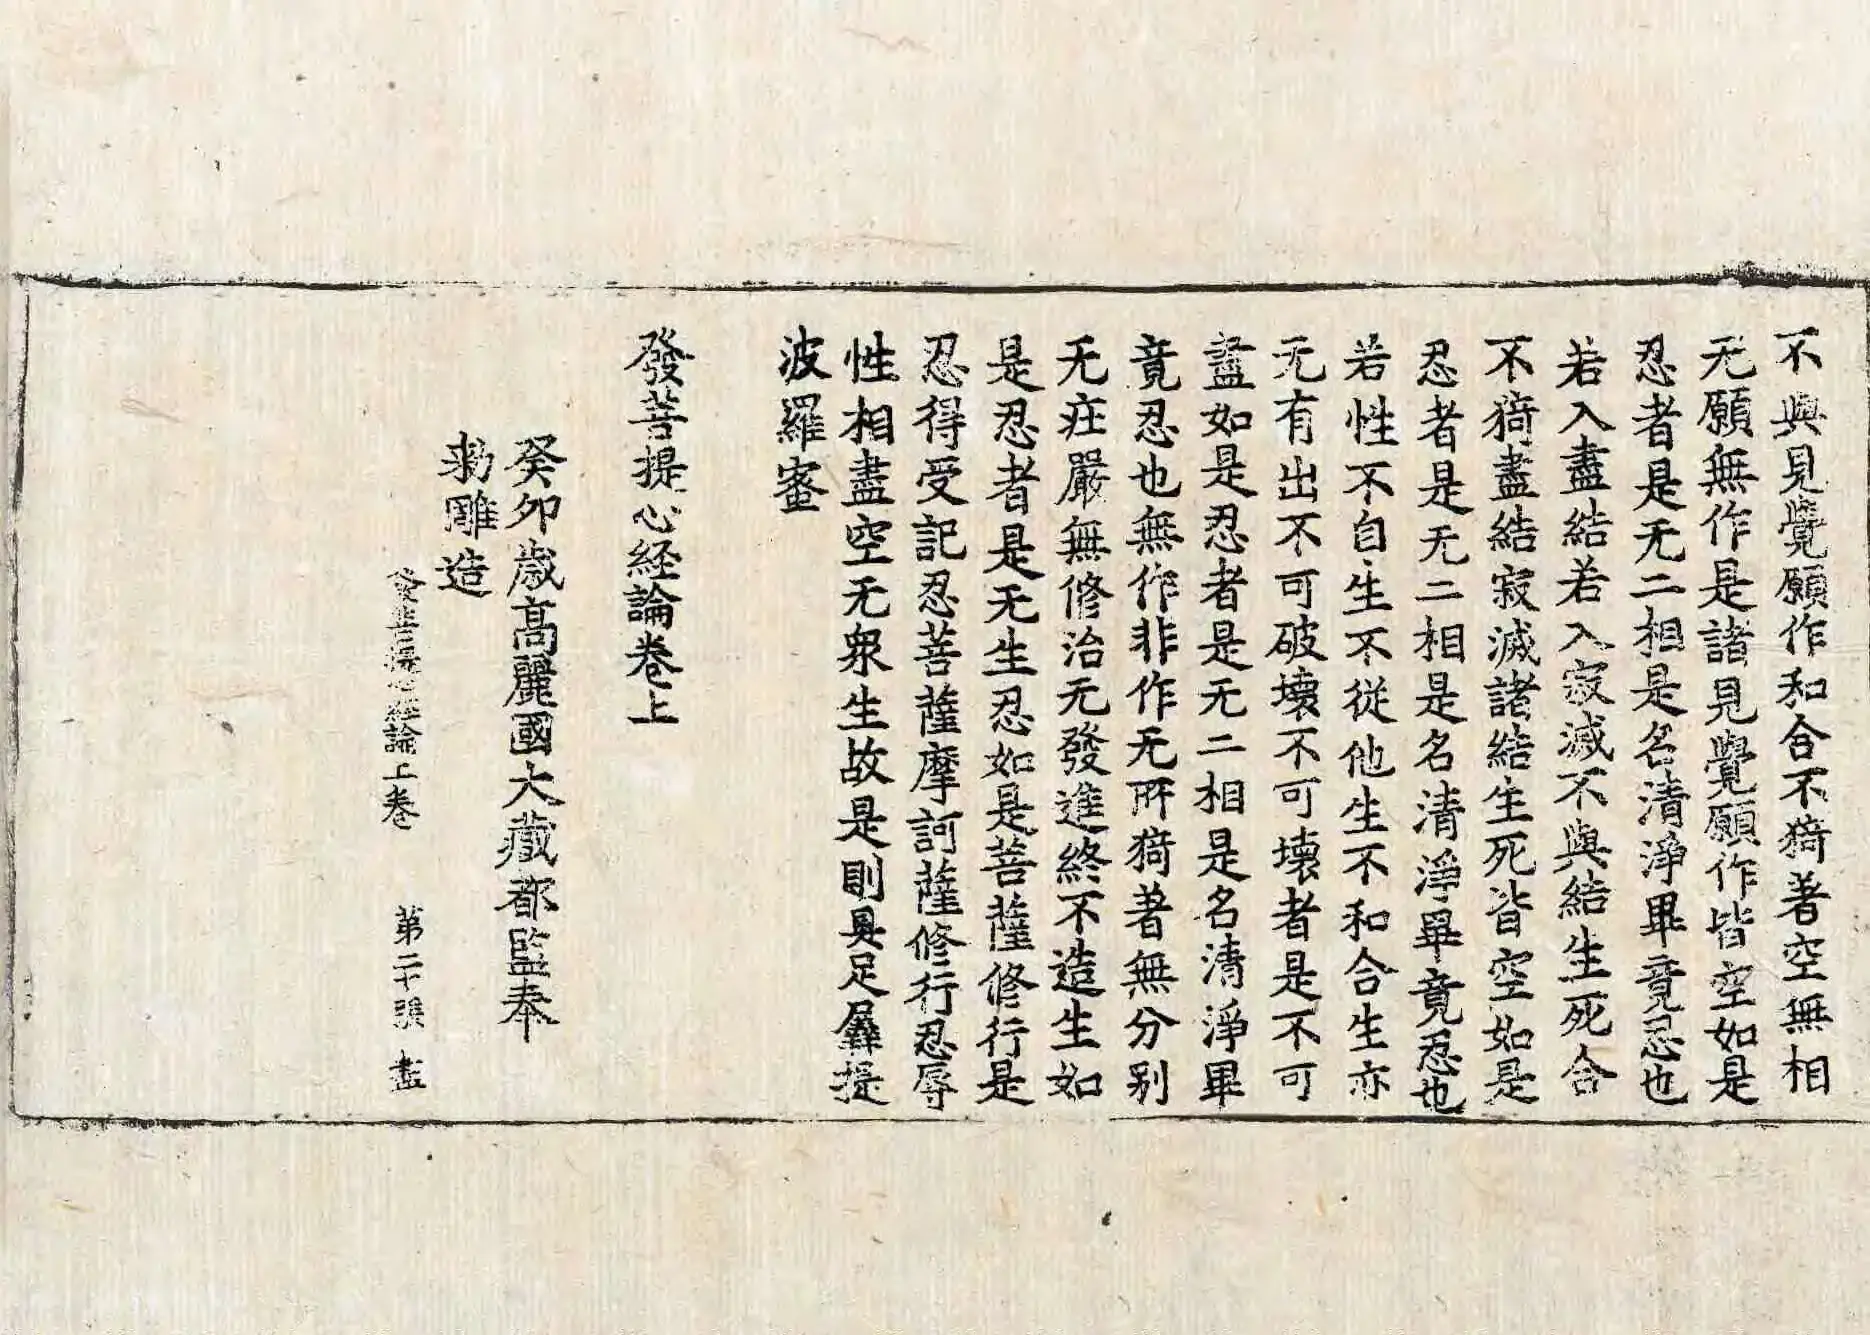 不與見覺願作和合不猗著空無相
无願無作是諸見覺願作皆空如是
忍者是无二相是名清淨畢竟忍也
若入盡結若入寂滅不與結生死合
不猗盡結寂滅諸結生死皆空如是
忍者是无二相是名清淨畢竟忍也
若性不自生不從他生不和合生亦
无有出不可破壞不可壞者是不可
盡如是忍者是无二相是名清淨畢
竟忍也無作非作无所猗著無分別
无莊嚴無修治无發進終不造生如
是忍者是无生忍如是菩薩修行是
忍得受記忍菩薩摩訶薩修行忍辱
性相盡空无衆生故是則具足羼提
波羅蜜
發菩提心經論卷上
癸卯歲高麗國大藏都監奉
勑雕造
發菩提心經論上卷 第二十張 盡